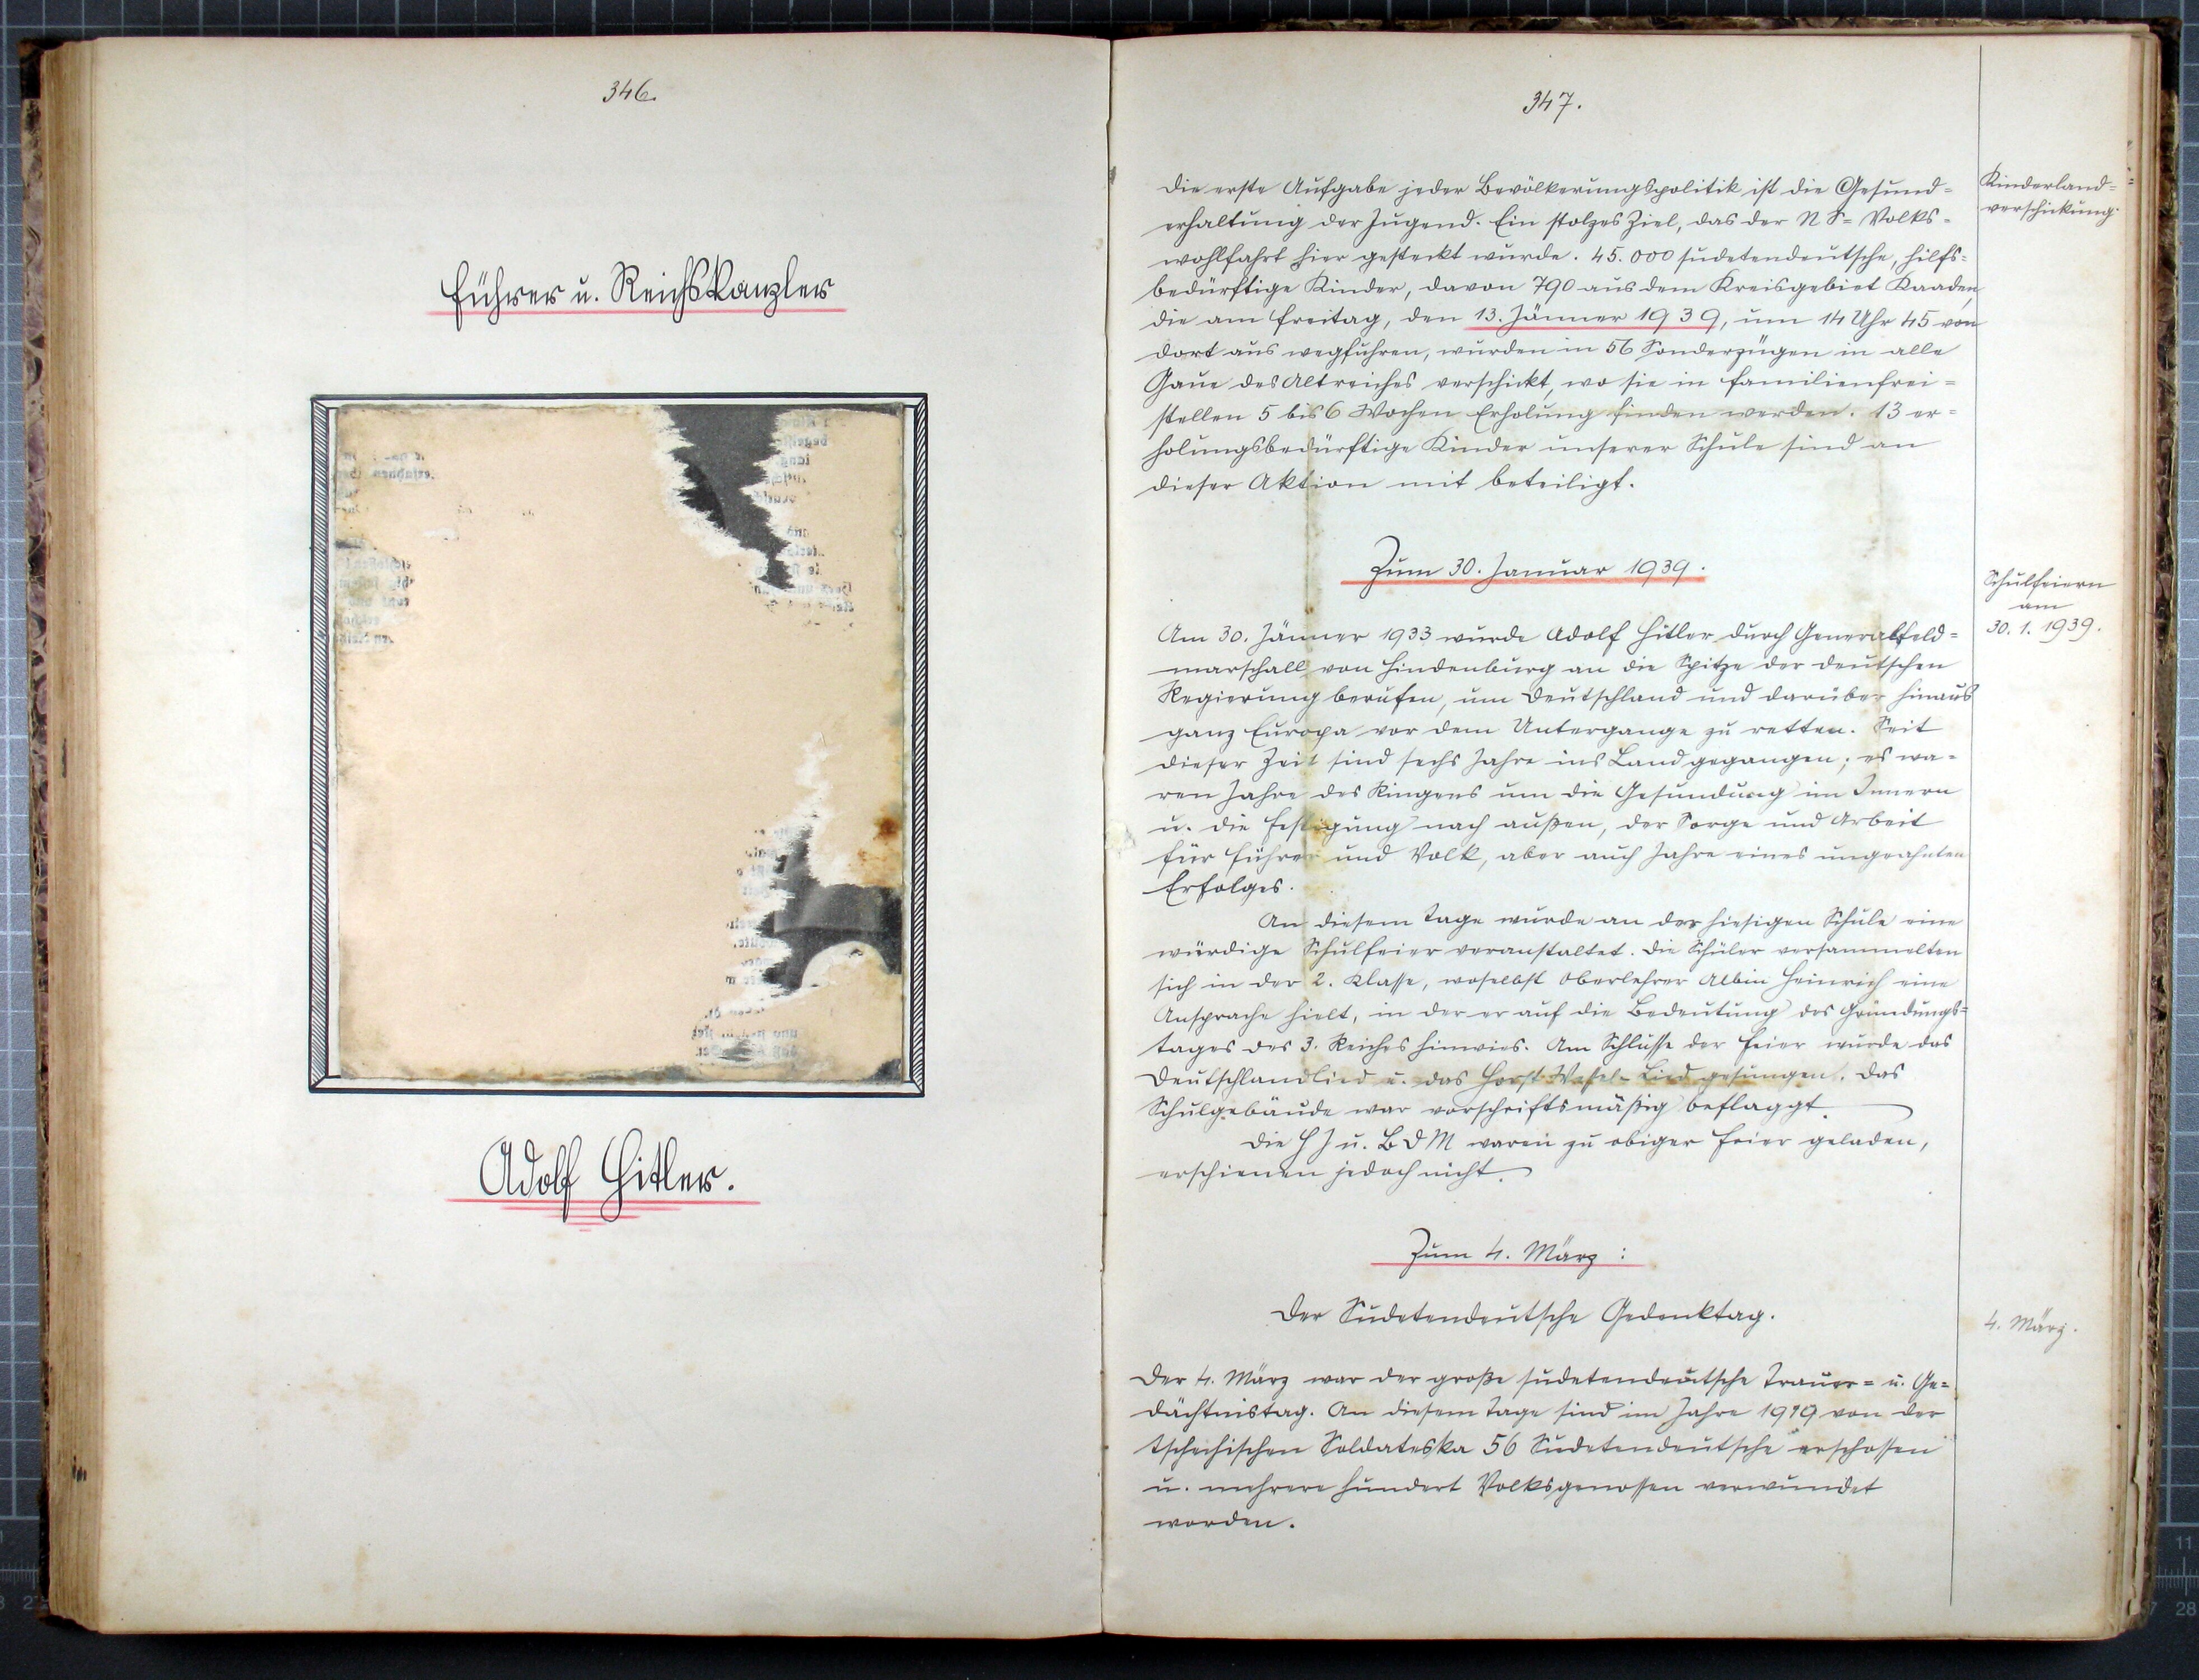 346.
Führer u. Reichskanzler
Adolf Hitler.
347.
Die erste Aufgabe jeder Bevölkerungspolitik ist die Gesund=
erhaltung der Jugend. Ein stolzes Ziel, das der NS= Volks=
wohlfahrt hier gesteckt wurde. 45.000 sudetendeutsche, hilfs=
bedürftige Kinder, davon 790 aus dem Kreisgebiet Kaaden,
die am Freitag, den 13. Jänner 1939, um 14 Uhr 45 von
dort aus wegfuhren, wurden in 56 Sonderzügen in alle
Gaue des Altreiches verschickt, wo sie in Familienfrei=
stellen 5 bis 6 Wochen Erholung finden werden. 13 er=
holungsbedürftige Kinder unserer Schule sind an
dieser Aktion mit beteiligt.
Kinderland=
verschickung.
Zum 30. Januar 1939.
Schulfeiern
am
30. 1. 1939.
Am 30. Jänner 1933 wurde Adolf Hitler durch Generalfeld=
marschall von Hindenburg an die Spitze der deutschen
Regierung berufen, um Deutschland und darüber hinaus
ganz Europa vor dem Untergange zu retten. Seit
dieser Zeit sind sechs Jahre ins Land gegangen; es wa=
ren Jahre des Ringens um die Gesundung im Innern
u. die Festigung nach außen, der Sorge und Arbeit
für Führer und Volk, aber auch Jahre eines ungeahnten
Erfolges.
An diesem Tage wurde an der hiesigen Schule eine
würdige Schulfeier veranstaltet. Die Schüler versammelten
sich in der 2. Klasse, woselbst Oberlehrer Albin Heinrich eine
Ansprache hielt, in der er auf die Bedeutung des Gründungs=
tages des 3. Reiches hinwies. Am Schlusse der Feier wurde das
Deutschlandlied u. das Horst-Wessel-Lied gesungen. Das
Schulgebäude war vorschriftsmäßig beflaggt.
Die HJ u. BDM waren zu obiger Feier geladen,
erschienen jedoch nicht.
Zum 4. März :
Der Sudetendeutsche Gedenktag.
4. März.
Der 4. März war der große sudetendeutsche Trauer= u. Ge=
dächtnistag. An diesem Tage sind im Jahre 1919 von der
tschechischen Soldateska 56 Sudetendeutsche erschossen
u. mehrere hundert Volksgenossen verwundet
worden.